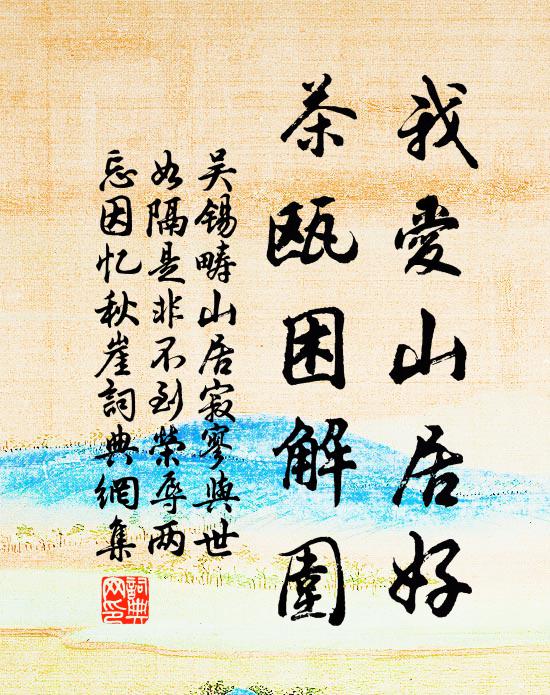 我愛山居好
茶甌困解圍
吴锡畴山居寂寥與世
如隔是非不到榮辱两
忘因忆秋崖詞典網集
詞典網印